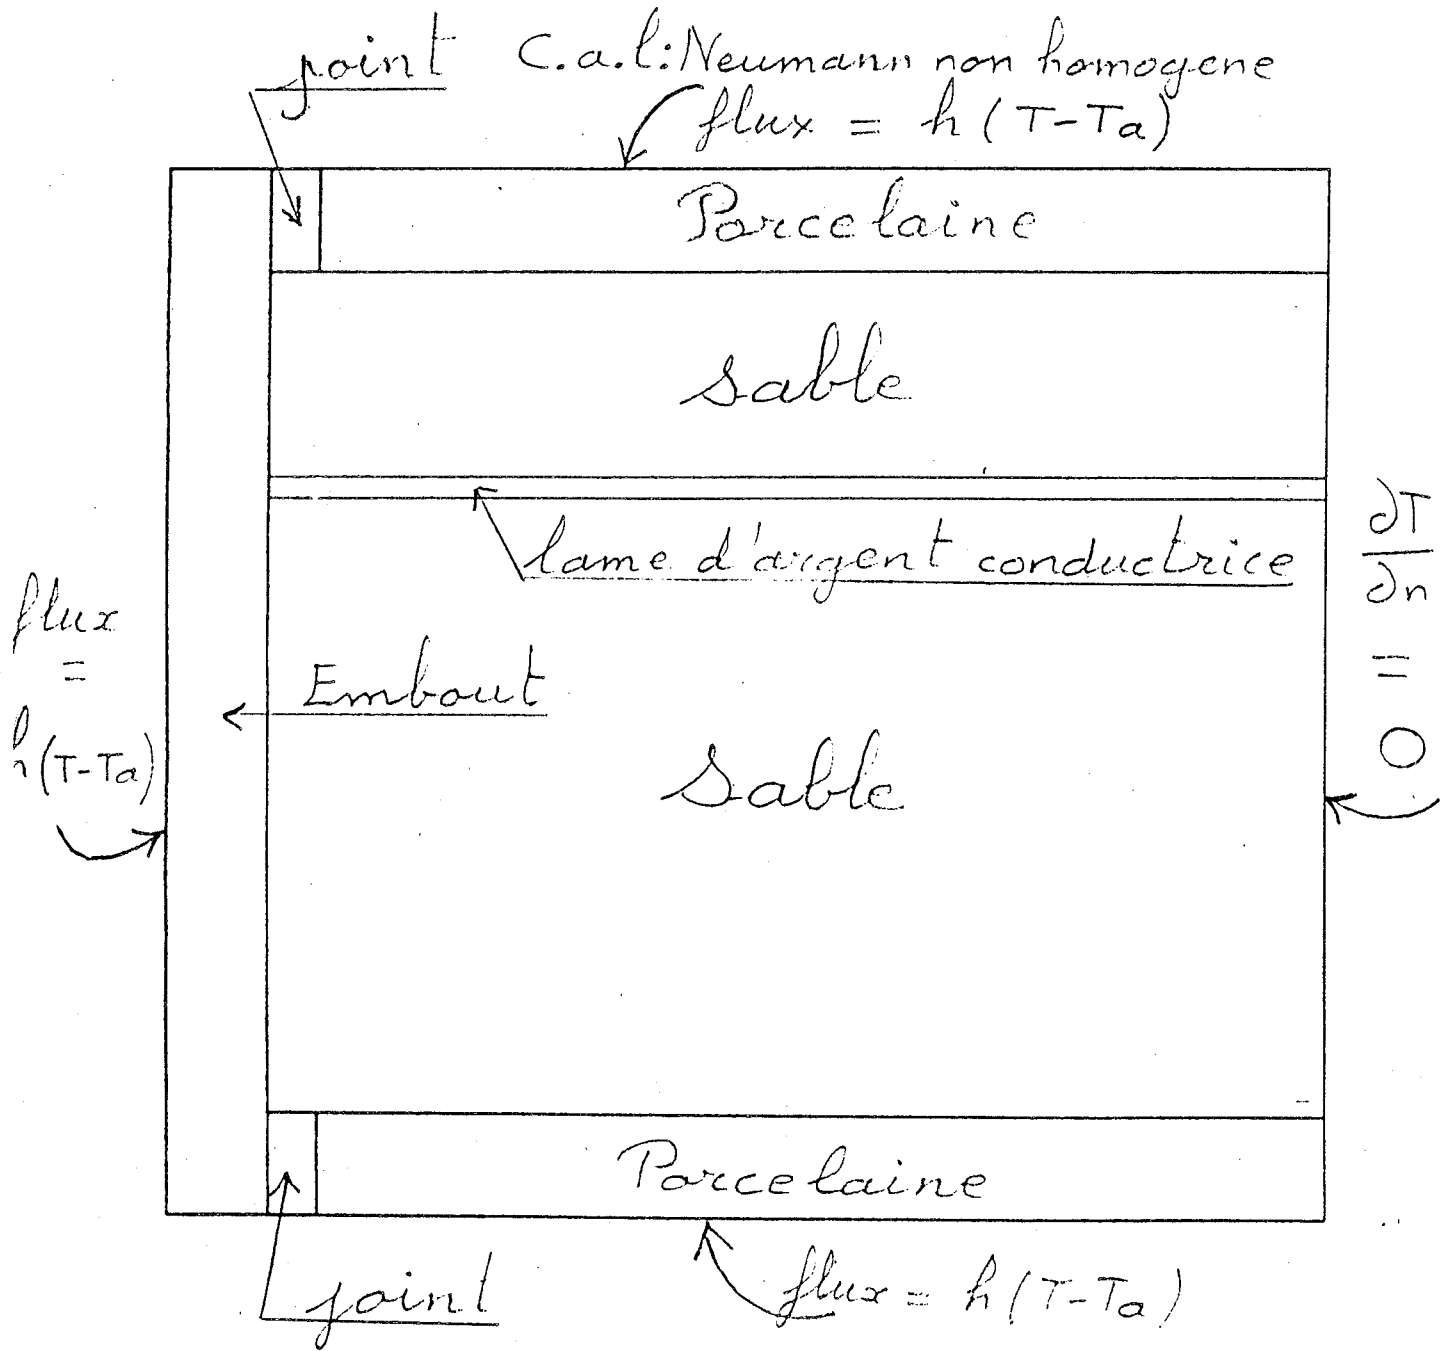 joint C.a.l: Neumann non homogene
flux = h (T-Ta)
Porcelaine
sable
lame d'argent conductrice
∂T
∂n
=
0
flux
=
h (T-Ta)
Embout
Sable
Porcelaine
joint
flux = h (T-Ta)